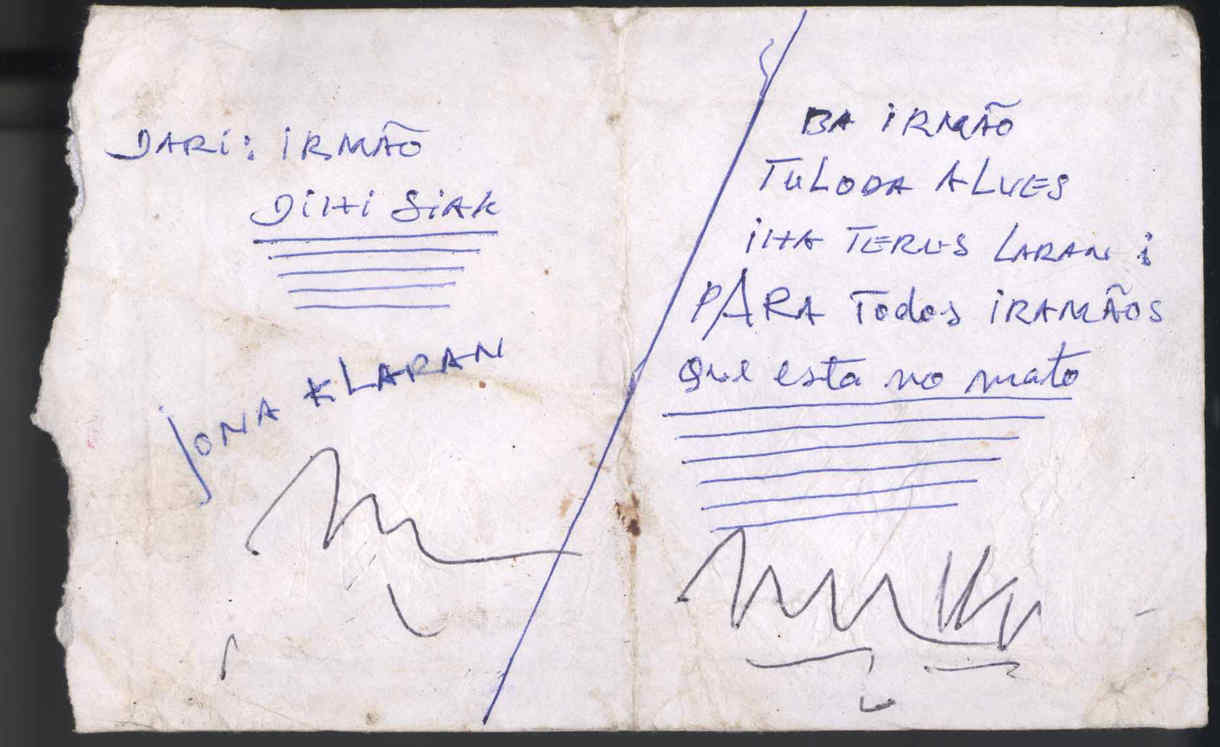 DARi: iRMÃO
DiHi SiAK
JONA KLARAN
BA iRMÃO
TULODA ALVES
iHA TERUS LARAN i
PARA Todos iRAMÃOS
que esta no mato